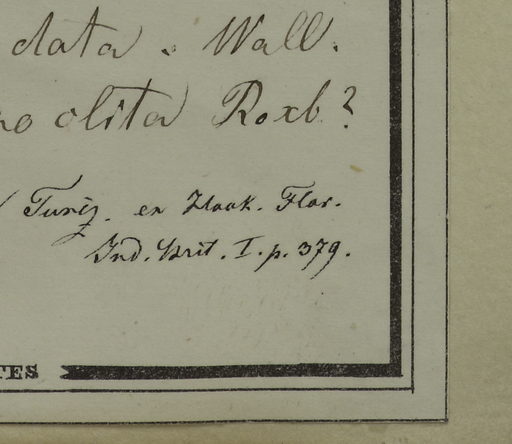 data. Wall.
olita Roxb?
Turcz. ex Hook. Flor.
Ind. Brit. I. p. 379.
TES